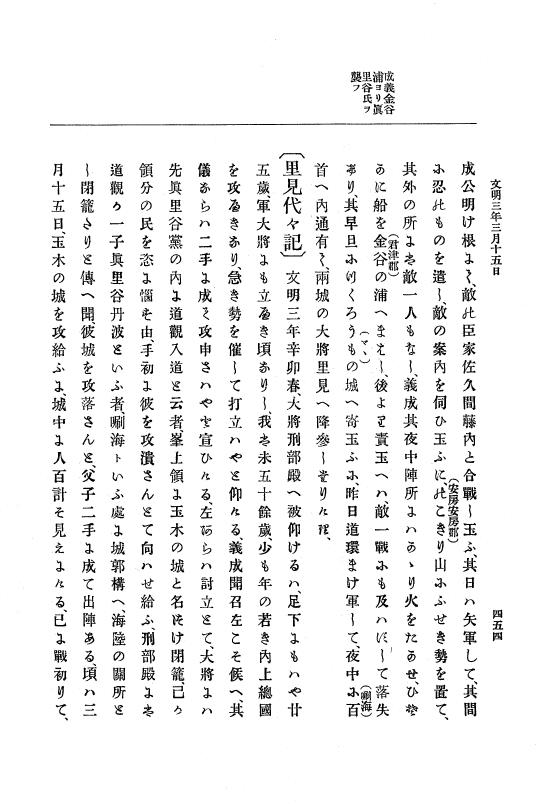 文明三年三月十五日
四五四
成義金谷
浦ヨリ眞
里谷氏ヲ
襲フ
成公明け根よく、敵此臣家佐久間藤内と合戰し玉ふ、其日ハ矢軍して、其間
に忍ひものを遣し、敵の案内を伺ひ玉ふに、此こきり山にふせき勢を置て、
(安房安房郡)
其外の所よは敵一人もなし、義成其夜中陣所よハかゝり火をたかせ、ひそ
かに船を金谷の浦へまはし、後より責玉へハ、敵一戰にも及ハにして落失
(君津郡)
(剛海)
けり、其早旦にけくろうもの城へ寄玉ふに、昨日道環まけ軍して、夜中に百
(マヽ)
首へ內通有し、兩城の大將里見へ降參しけりける、
〔里見代々記〕 文明三年辛卯春、大將刑部殿へ被仰けるハ、足下よもハや廿
五歲、軍大將よも立るき頃なりし、我は未五十餘歲、少も年の若き内上總國
を攻るきなり、急き勢を催して打立ハやと仰ける、義成聞召左こそ候へ、其
儀ならハ二手よ成て攻申さハやと宣ひける、左あらハ討立とて、大將よハ
先眞里谷黨の內よ道觀入道と云者、峯上領よ玉木の城と名つけ閉籠、己り
領分の民を恣よ惱そ由、手初よ彼を攻潰さんとて向ハせ給ふ、刑部殿よは
道觀り一子眞里谷丹波といふ者、剛海トいふ處よ城郭構へ、海陸の關所と
し閉籠さりと傳へ聞、彼城を攻落さんと、父子二手よ成て出陣ある、頃ハ三
月十五日、玉木の城を攻給ふよ、城中よ人百計そ見えよける、已よ戰初りて、